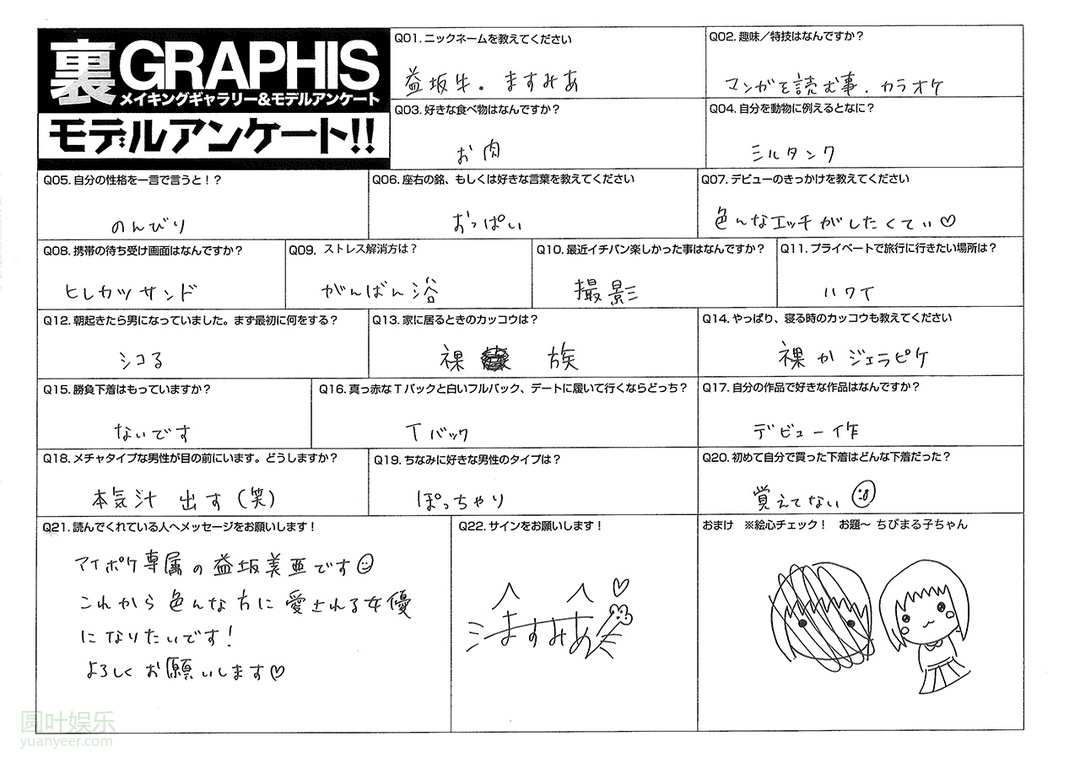 裏GRAPHIS
メイキングギャラリー&モデルアンケート
モデルアンケート!!
Q01. ニックネームを教えてください
益坂牛。ますみあ
Q02. 趣味／特技はなんですか？
マンガを読む事. カラオケ
Q03. 好きな食べ物はなんですか？
お肉
Q04. 自分を動物に例えるとなに？
ミルタンク
Q05. 自分の性格を一言で言うと！？
のんびり
Q06. 座右の銘、もしくは好きな言葉を教えてください
おっぱい
Q07. デビューのきっかけを教えてください
色んなエッチがしたくてぃ♡
Q08. 携帯の待ち受け画面はなんですか？
ヒレカツサンド
Q09. ストレス解消方は？
がんばん浴
Q10. 最近イチバン楽しかった事はなんですか？
撮影
Q11. プライベートで旅行に行きたい場所は？
ハワイ
Q12. 朝起きたら男になっていました。まず最初に何をする？
シコる
Q13. 家に居るときのカッコウは？
裸 族
Q14. やっぱり、寝る時のカッコウも教えてください
裸かジェラピケ
Q15. 勝負下着はもっていますか？
ないです
Q16. 真っ赤なTバックと白いフルバック、デートに履いて行くならどっち？
Tバック
Q17. 自分の作品で好きな作品はなんですか？
デビュー作
Q18. メチャタイプな男性が目の前にいます。どうしますか？
本気汁 出す(笑)
Q19. ちなみに好きな男性のタイプは？
ぽっちゃり
Q20. 初めて自分で買った下着はどんな下着だった？
覚えてない
Q21. 読んでくれている人へメッセージをお願いします！
アイポケ専属の益坂美亜です
これから色んな方に愛される女優
になりたいです!
よろしくお願いします♡
Q22. サインをお願いします！
ますみあ
おまけ ※絵心チェック！ お題〜 ちびまる子ちゃん
圆叶娱乐
yuanyeer.com